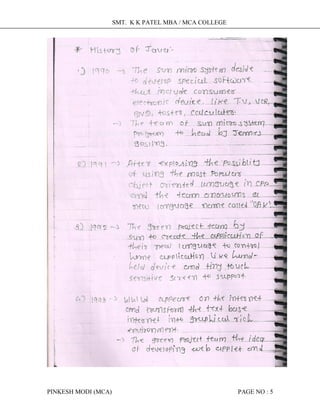 SMT. K K PATEL MBA / MCA COLLEGE
* History of Java:-
1) 1990 → The sun micro system decide
to develop special software
that include consumer
electronic device like TV, VCR,
toster, calculater.
→) The team of sun micro system
program to head by Jemes
gosling.
2) 1991 → After exploring the Possiblity
of using the most Powerful
object oriented language in CPP
and the team announces a
new language name called "OAK".
3) 1992 → The green project team by
sun to create the application of
their new language to control
home application like hand-
held device and tiny touch
sensative screen to support.
4) 1993 → appeare on the internet
and transform the text base
internet into graphical rich
environment.
→ The green project team the idea
of developing web applet and
PINKESH MODI (MCA) PAGE NO : 5